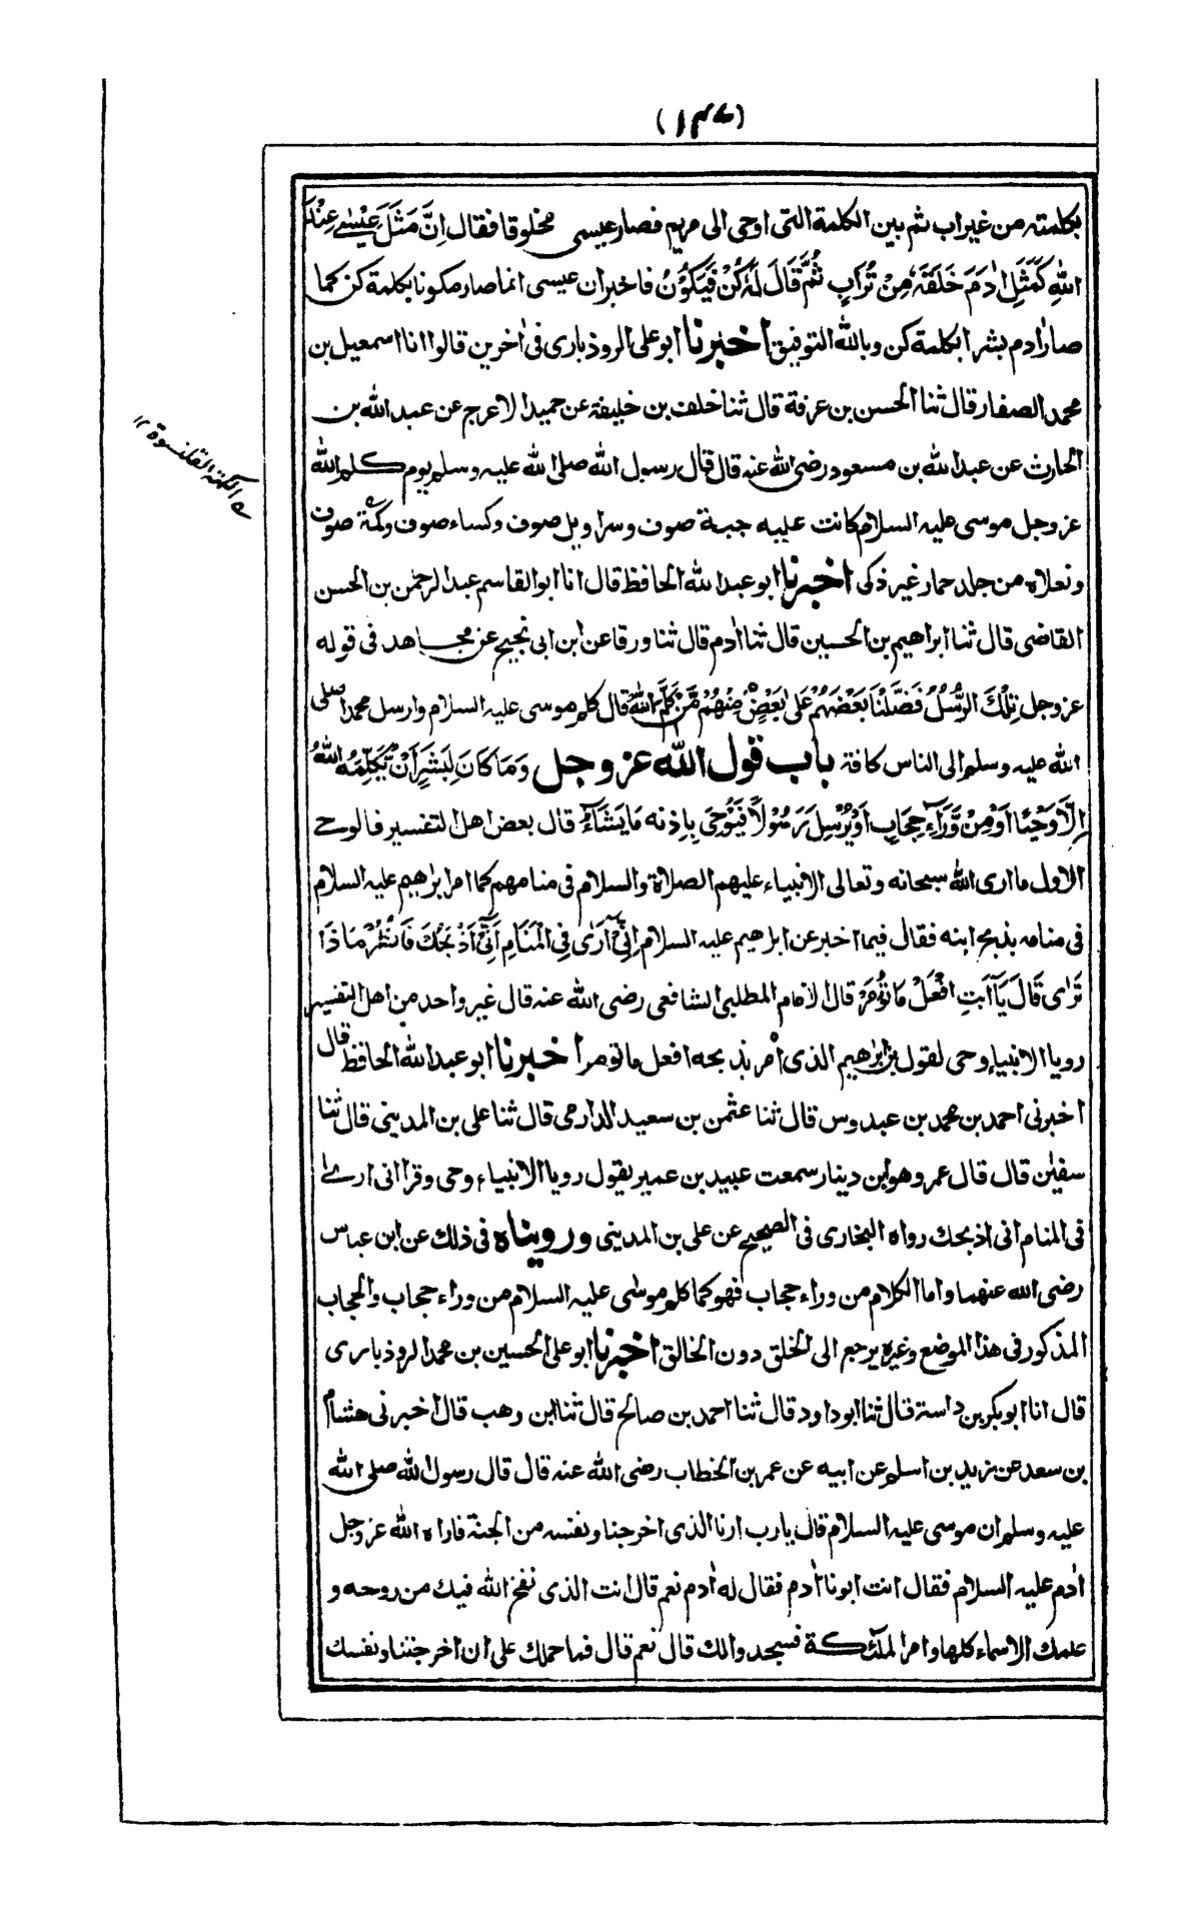 (١٣٧)
بكلمته من غير اب ثم بين الكلمة التى اوحى الى مريم فصار عيسى مخلوقا فقال اِنَّ مَثَلَ عِيْسٰے عِنْدَ
اللهِ كَمَثَلِ اٰدَمَ خَلَقَهٗ مِنْ تُرَابٍ ثُمَّ قَالَ لَهٗ كُنْ فَيَكُوْنُ فاخبر ان عيسى انما صار مكونا بكلمة كن كما
صار اٰدم بشرا بكلمة كن وبالله التوفيق اخبرنا ابو على الروذبارى فى اٰخرين قالوا انا اسمعيل بن
محمد الصفار قال ثنا الحسن بن عرفة قال ثنا خلف بن خليفة عن حميد الاعرج عن عبد الله بن
الحارث عن عبد الله بن مسعود رضى الله عنه قال قال رسول الله صلى الله عليه وسلم يوم كلم الله
عز وجل موسى عليه السلام كانت عليه جبة صوف وسراويل صوف وكساء صوف وكمة صوف
ونعلاه من جلد حمار غير ذكى اخبرنا ابو عبد الله الحافظ قال انا ابو القاسم عبد الرحمٰن بن الحسن
القاضى قال ثنا ابراهيم بن الحسين قال ثنا اٰدم قال ثنا ورقا عن ابن ابى نجيح عن مجاهد فى قوله
عز وجل تِلْكَ الرُّسُلُ فَضَّلْنَا بَعْضَهُمْ عَلٰى بَعْضٍ مِنْهُمْ مَّنْ كَلَّمَ اللهُ قال كلم موسى عليه السلام وارسل محمدا صلى
الله عليه وسلم الى الناس كافة باب قول الله عز وجل وَمَا كَانَ لِبَشَرٍ اَنْ يُّكَلِّمَهُ اللهُ
اِلَّا وَحْيًا اَوْ مِنْ وَّرَآءِ حِجَابٍ اَوْ يُرْسِلَ رَسُوْلًا فَيُوْحِىَ بِاِذْنِه مَا يَشَآءُ قال بعض اهل التفسير فالوحے
الاول ما ارى الله سبحانه وتعالى الانبياء عليهم الصلاة والسلام فى منامهم كما امر ابراهيم عليه السلام
فى منامه بذبح ابنه فقال فيما اخبر عن ابراهيم عليه السلام اِنِّىْ اَرٰى فِى الْمَنَامِ اَنِّىْ اَذْبَحُكَ فَانْظُرْ مَاذَا
تَرٰى قَالَ يَآ اَبَتِ افْعَلْ مَا تُؤْمَرُ قال الامام المطلبى الشافعى رضى الله عنه قال غير واحد من اهل التفسير
رويا الانبياء وحى لقول ابن ابراهيم الذى اُمر بذبحه افعل ما تومر اخبرنا ابو عبد الله الحافظ قال
اخبرنى احمد بن محمد بن عبدوس قال ثنا عثمن بن سعيد الدارمى قال ثنا على بن المدينى قال ثنا
سفيٰن قال قال عمرو هو ابن دينار سمعت عبيد بن عمير يقول رويا الانبياء وحى وقرا انى ارے
فى المنام انى اذبحك رواه البخارى فى الصحيح عن على بن المدينى ورويناه فى ذلك عن ابن عباس
رضى الله عنهما واما الكلام من وراء حجاب فهو كما كلم موسٰى عليه السلام من وراء حجاب والحجاب
المذكور فى هذا الموضع وغيره يرجع الى الخلق دون الخالق اخبرنا ابو على الحسين بن محمد الروذبارى
قال انا ابو بكر بن داسة قال ثنا ابو داود قال ثنا احمد بن صالح قال ثنا ابن وهب قال اخبرنى هشام
بن سعد عن زيد بن اسلم عن ابيه عن عمر بن الخطاب رضى الله عنه قال قال رسول الله صلى الله
عليه وسلم ان موسى عليه السلام قال يا رب ارنا الذى اخرجنا ونفسه من الجنة فاراه الله عز وجل
اٰدم عليه السلام فقال انت ابونا اٰدم فقال له اٰدم نعم قال انت الذى نفخ الله فيك من روحه و
علمك الاسماء كلها وامر الملٰئكة فسجدوا لك قال نعم قال فما حملك على ان اخرجتنا ونفسك
الكمة القلنسوة ١٢